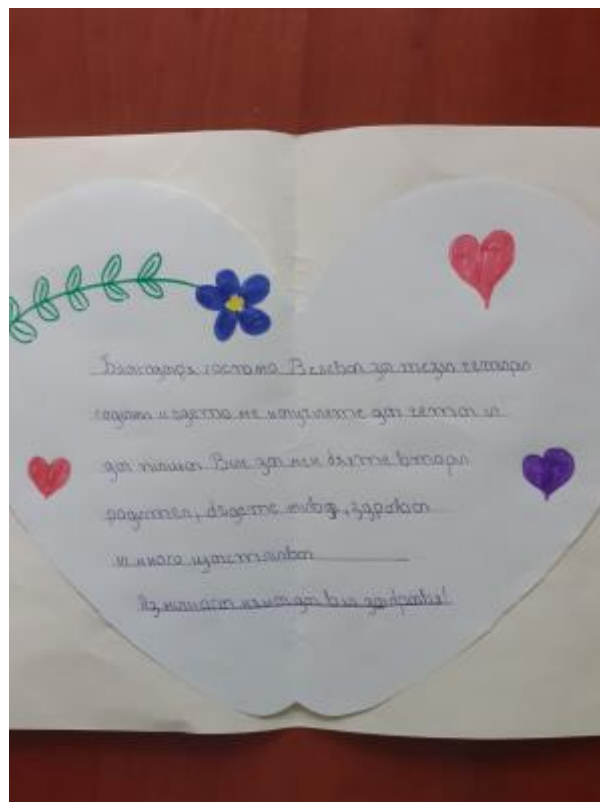 Благодаря госпожо Велева за тези четири
години където не научихте да четем и
да пишем Вие за мен бяхте втори
родител, бъдете жива, здрава
и много щастлива
Аз никога няма да Ви забравя!